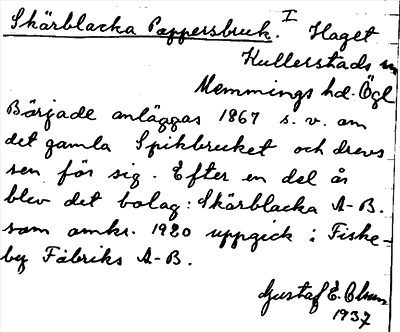 Skärblacka Pappersbruk. I Haget
Kullerstads sn
Memmings hd. Ögl
Började anläggas 1867 s. v. om
det gamla Spikbruket och drevs
sen för sig. Efter en del år
blev det bolag: Skärblacka A-B.
som omkr. 1920 uppgick i Fiske-
by Fabriks A-B.
Gustaf E. Olsson
1937